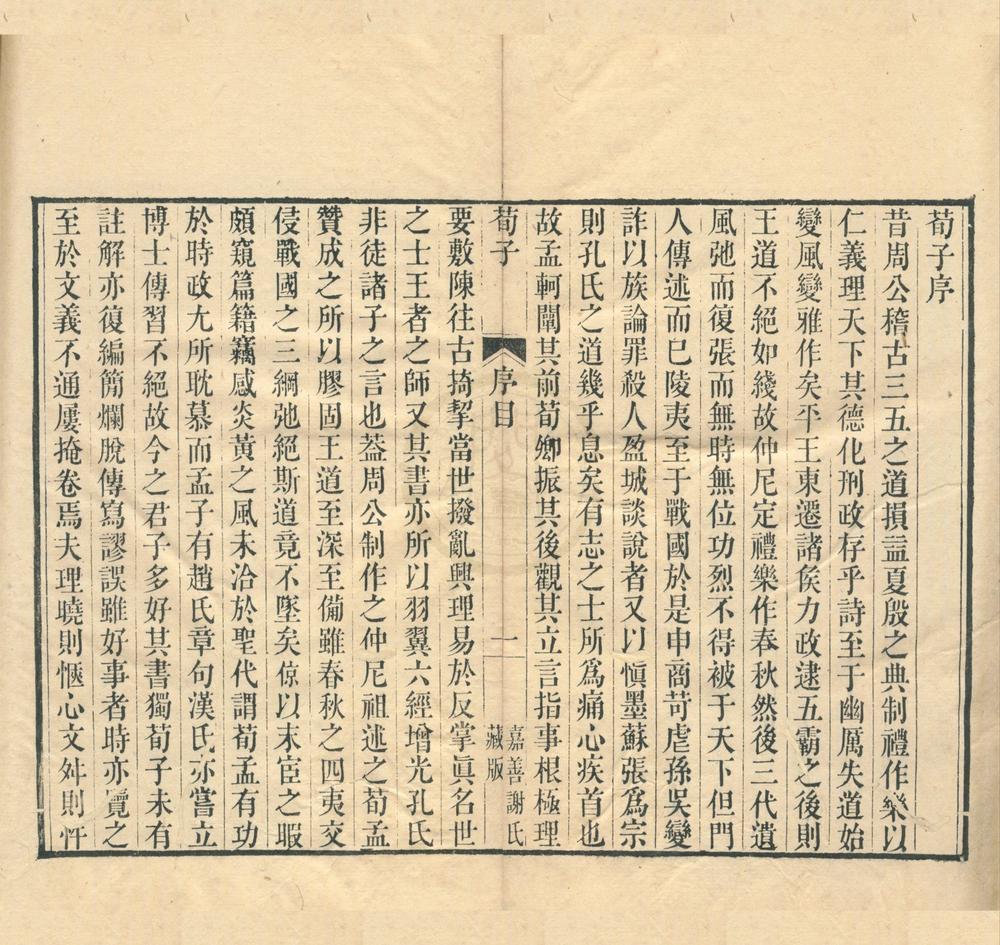 荀子序
昔周公稽古三五之道損益夏殷之典制禮作樂以
仁義理天下其德化刑政存乎詩至于幽厲失道始
變風變雅作矣平王東遷諸侯力政逮五霸之後則
王道不絕如綫故仲尼定禮樂作春秋然後三代遺
風弛而復張而無時無位功烈不得被于天下但門
人傳述而已陵夷至于戰國於是申商苛虐孫吳變
詐以族論罪殺人盈城談說者又以愼墨蘇張爲宗
則孔氏之道幾乎息矣有志之士所爲痛心疾首也
故孟軻闡其前荀卿振其後觀其立言指事根極理
荀子 序目 一 嘉善謝氏
藏版
要敷陳往古掎挈當世撥亂興理易於反掌眞名世
之士王者之師又其書亦所以羽翼六經增光孔氏
非徒諸子之言也葢周公制作之仲尼祖述之荀孟
贊成之所以膠固王道至深至備雖春秋之四夷交
侵戰國之三綱弛絕斯道竟不墜矣倞以末宦之暇
頗窺篇籍竊感炎黃之風未洽於聖代謂荀孟有功
於時政尤所耽慕而孟子有趙氏章句漢氏亦嘗立
博士傳習不絕故今之君子多好其書獨荀子未有
註解亦復編簡爛脫傳寫謬誤雖好事者時亦覽之
至於文義不通屢掩卷焉夫理曉則愜心文舛則忤